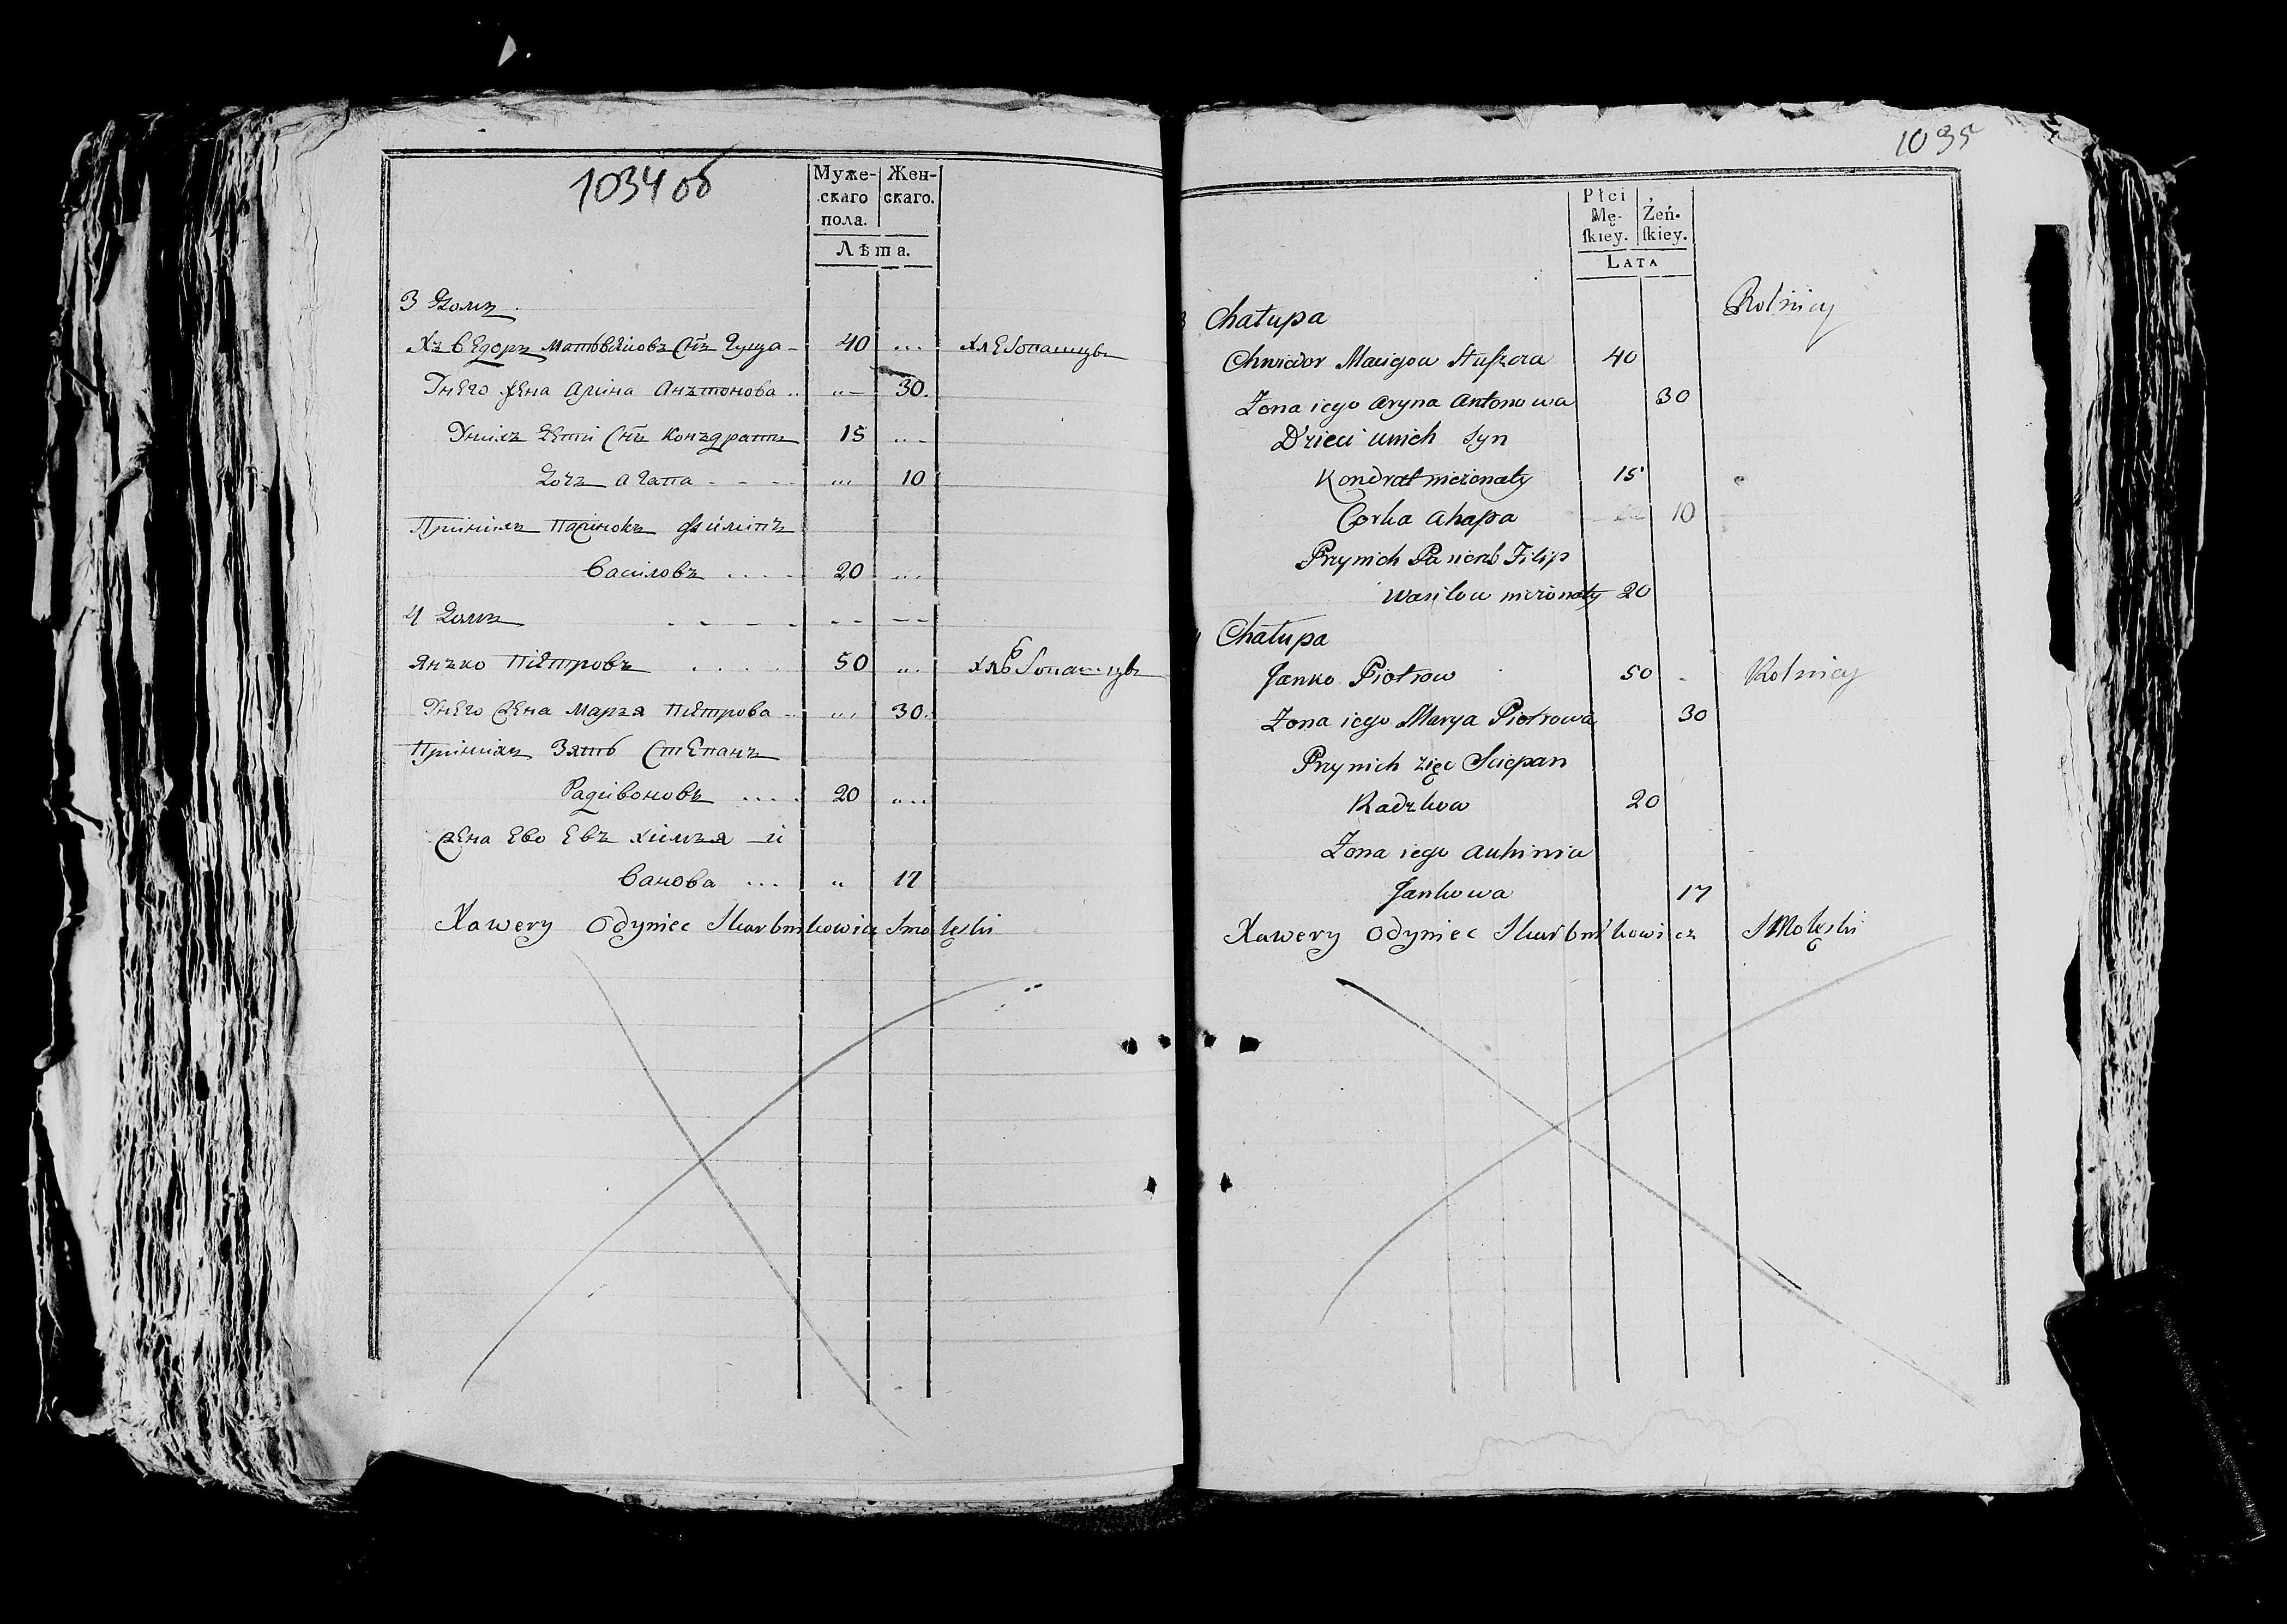 1034 об
Муже-
скаго
пола.
Жен-
скаго.
Лѣта.
3 Домъ
Хъведоръ Матьвѣйовъ Снъ 40 ... хлебопашцъ
Унего жена Арина Анътонова .. 30.
Унихъ дети Снъ Конъдратъ 15
Дочъ Агапа - - - ... 10
Прінихъ пасінокъ Філіпъ
Василовъ .... 20 ...
4 Домъ
Янъко Піётровъ .... 50 ... хлебопашцъ
Унего жена Маръя Піётрова .. ... 30.
Прініхъ Зять Степанъ
Радівоновъ .... 20 ...
жена Ево Евъхімъя й
Ванова ... .. 17
Xawery Odyniec Skarbnikowicz Smoleński
1035
Płci
Mę-
skiey.
Żeń-
skiey.
LATA
3 Chałupa Rolnicy
Chwiedor Maciejow 40
Żona iego Aryna Antonowa 30
Dzieci unich Syn
Kondrat nieżonaty 15
Corka Ahapa 10
Przynich Pasierb Filip
Wasilow nieżonaty 20
4 Chałupa
Janko Piotrow 50 - Rolnicy
Żona iego Marya Piotrowa 30
Przynich zięc Sciepan
20
Żona iego Auhinia
Jankowa 17
Xawery Odyniec Skarbnikowicz Smoleński